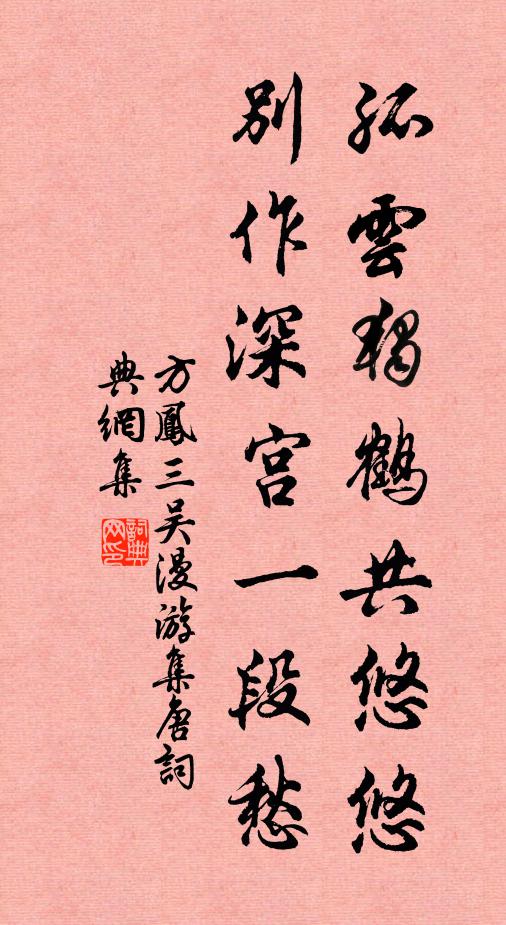 孤雲獨鶴共悠悠
別作深宮一段愁
方鳳三吳漫游集唐詞
典網集
詞典
网印